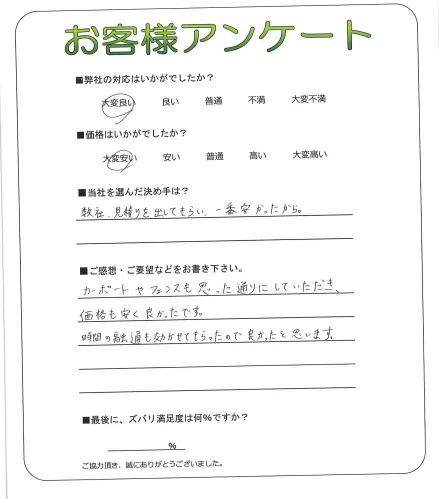 お客様アンケート
■弊社の対応はいかがでしたか？
大変良い 良い 普通 不満 大変不満
■価格はいかがでしたか？
大変安い 安い 普通 高い 大変高い
■当社を選んだ決め手は？
数社、見積りを出してもらい、一番安かったから。
■ご感想・ご要望などをお書き下さい。
カーポートやフェンスも思った通りにしていただき、
価格も安く良かったです。
時間の融通も効かせてもらったので良かったと思います。
■最後に、ズバリ満足度は何%ですか？
%
ご協力頂き、誠にありがとうございました。